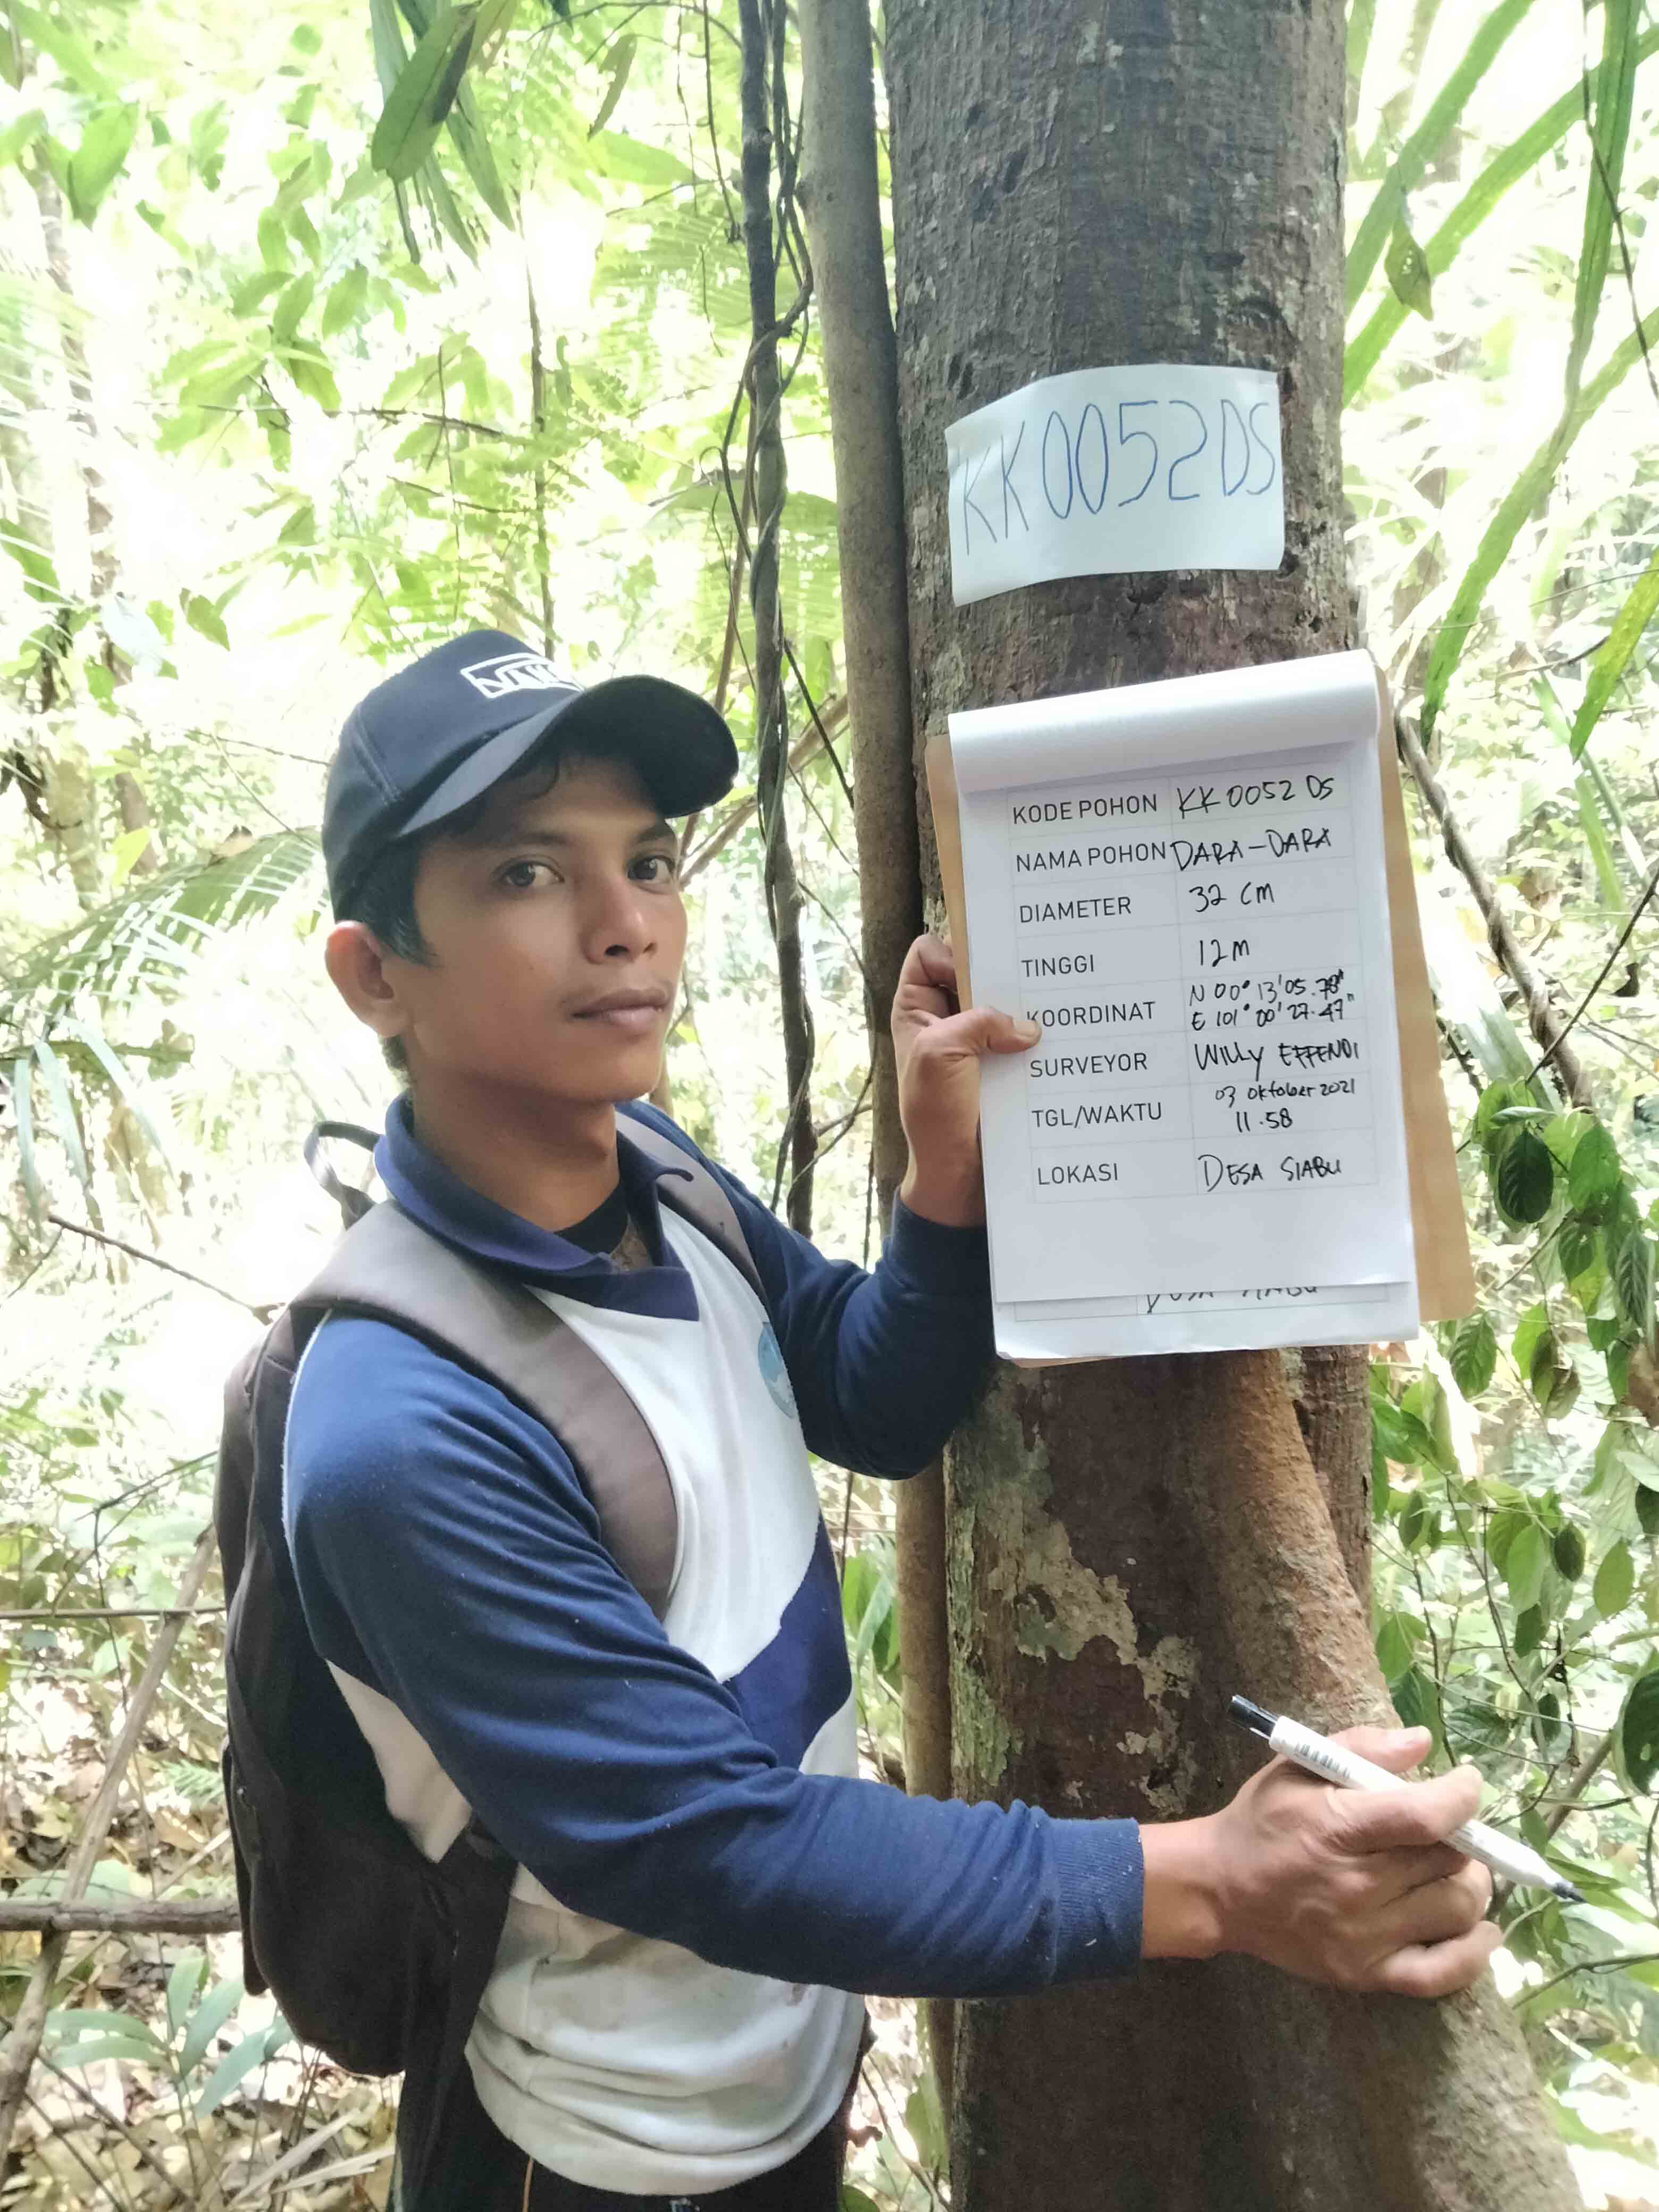 KK0052DS
KODE POHON KK 0052 DS
NAMA POHON DARA-DARA
DIAMETER 32 CM
TINGGI 12M
KOORDINAT N 00° 13' 05.78"
E 101° 00' 27.47"
SURVEYOR WILLY EFFENDI
TGL/WAKTU 03 Oktober 2021
11.58
LOKASI DESA SIABU